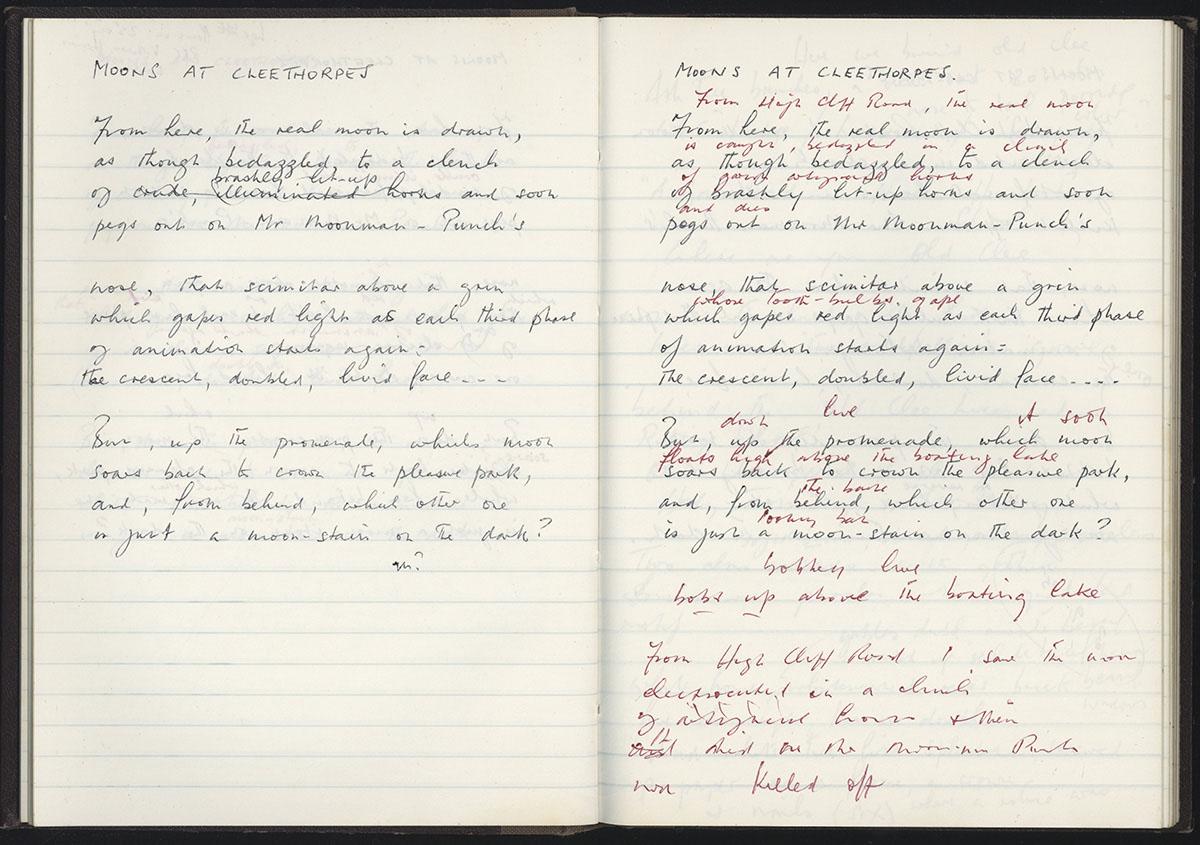 MOONS AT CLEETHORPES
From here, the real moon is drawn,
as though bedazzled, to a clench
brashly lit-up
of crude, illuminated horns and soon
pegs out on Mr Moonman-Punch's
nose, that scimitar above a grin
which gapes red light as each third phase
of animation starts again:
the crescent, doubled, livid face....
But, up the promenade, which moon
soars back to crown the pleasure park,
and, from behind, which other one
is just a moon-stain on the dark?
MOONS AT CLEETHORPES.
From High Cliff Road, the real moon
From here, the real moon is drawn,
is caught, bedazzled in a clench
as though bedazzled, to a clench
of horns
of brashly lit-up horns and soon
and dies
pegs out on Mr Moonman-Punch's
nose, that scimitar above a grin
whose tooth-bulbs gape
which gapes red light as each third phase
of animation starts again:
the crescent, doubled, livid face....
down live
But, up the promenade, which moon
floats high above the boating lake
soars back to crown the pleasure park,
and, from behind, which other one
is just a moon-stain on the dark?
live
bobs up above the boating lake
From High Cliff Road I saw the moon
electrocuted in a clench
of horns & then
died on the Moon-man Punch
Killed off